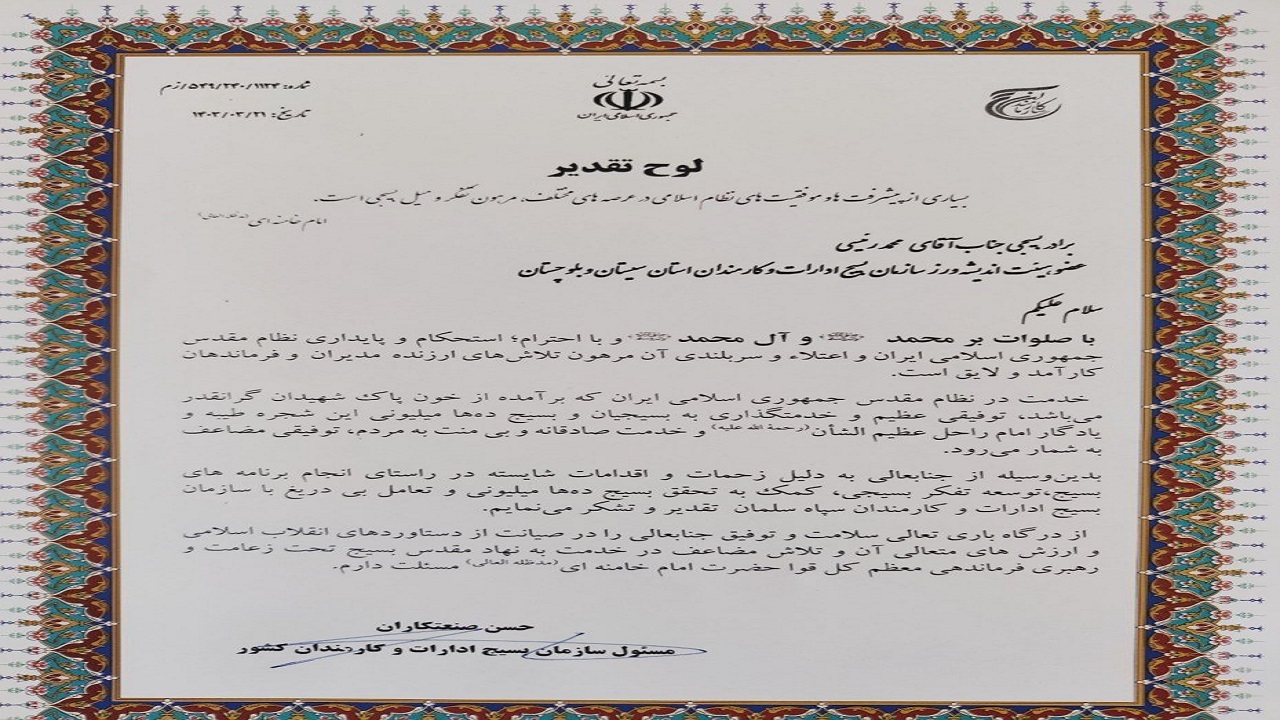 بسمه تعالی
جمهوری اسلامی ایران
شماره: ۵۴۹/۲۴۰/۱۱۲۴/زم
تاریخ: ۱۴۰۳/۰۳/۲۱
لوح تقدیر
بسیاری از پیشرفت ها و موفقیت های نظام اسلامی در عرصه های مختلف، مرهون تفکر و میل بسیجی است.
امام خامنه ای (مدظله العالی)
برادر بسیجی جناب آقای محمد رئیسی
عضو هیئت اندیشه ورز سازمان بسیج ادارات و کارمندان استان سیستان و بلوچستان
سلام علیکم
با صلوات بر محمد ﷺ و آل محمد ﷺ و با احترام؛ استحکام و پایداری نظام مقدس
جمهوری اسلامی ایران و اعتلاء و سربلندی آن مرهون تلاش‌های ارزنده مدیران و فرماندهان
کارآمد و لایق است.
خدمت در نظام مقدس جمهوری اسلامی ایران که برآمده از خون پاک شهیدان گرانقدر
می‌باشد، توفیقی عظیم و خدمتگذاری به بسیجیان و بسیج ده‌ها میلیونی این شجره طیبه و
یادگار امام راحل عظیم الشأن (رحمة الله علیه) و خدمت صادقانه و بی منت به مردم، توفیقی مضاعف
به شمار می‌رود.
بدین‌وسیله از جنابعالی به دلیل زحمات و اقدامات شایسته در راستای انجام برنامه های
بسیج،توسعه تفکر بسیجی، کمک به تحقق بسیج ده‌ها میلیونی و تعامل بی دریغ با سازمان
بسیج ادارات و کارمندان سپاه سلمان تقدیر و تشکر می‌نمایم.
از درگاه باری تعالی سلامت و توفیق جنابعالی را در صیانت از دستاوردهای انقلاب اسلامی
و ارزش های متعالی آن و تلاش مضاعف در خدمت به نهاد مقدس بسیج تحت زعامت و
رهبری فرماندهی معظم کل قوا حضرت امام خامنه ای (مدظله العالی) مسئلت دارم.
حسن صنعتکاران
مسئول سازمان بسیج ادارات و کارمندان کشور